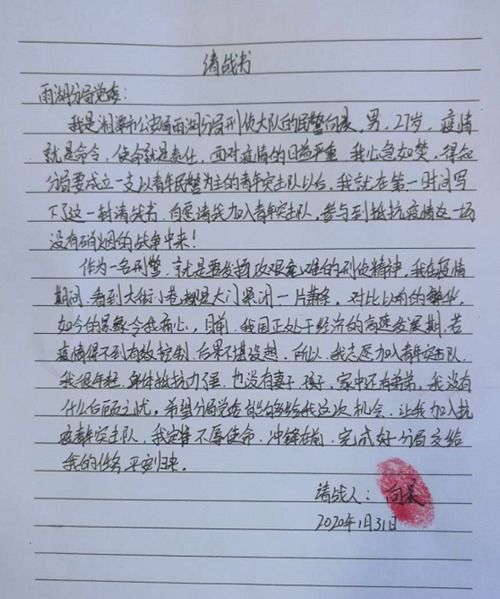 请战书
雨湖分局党委：
我是湘潭市公安局雨湖分局刑侦大队的民警向昊，男，27岁，疫情
就是命令，使命就是责任，面对疫情的日益严重，我心急如焚，得知
分局要成立一支以青年民警为主的青年突击队以后，我就在第一时间写
下了这一封请战书，自愿请求加入青年突击队，参与到抵抗疫情这一场
没有硝烟的战争中来！
作为一名刑警，就是要发扬攻艰克难的刑侦精神，我在疫情
期间，看到大街小巷都是大门紧闭一片萧条，对比以前的繁华，
如今的景象令我痛心，目前，我国正处于经济的高速发展期，若
疫情得不到有效控制，后果不堪设想，所以，我志愿加入青年突击队，
我很年轻，身体抵抗力强，也没有妻子孩子，家中还有弟弟，我没有
什么后顾之忧，希望分局党委能够给我这次机会，让我加入抗
疫青年突击队，我定将不辱使命，冲锋在前，完成好分局交给
我的任务，平安归来。
请战人：向昊
2020年1月31日